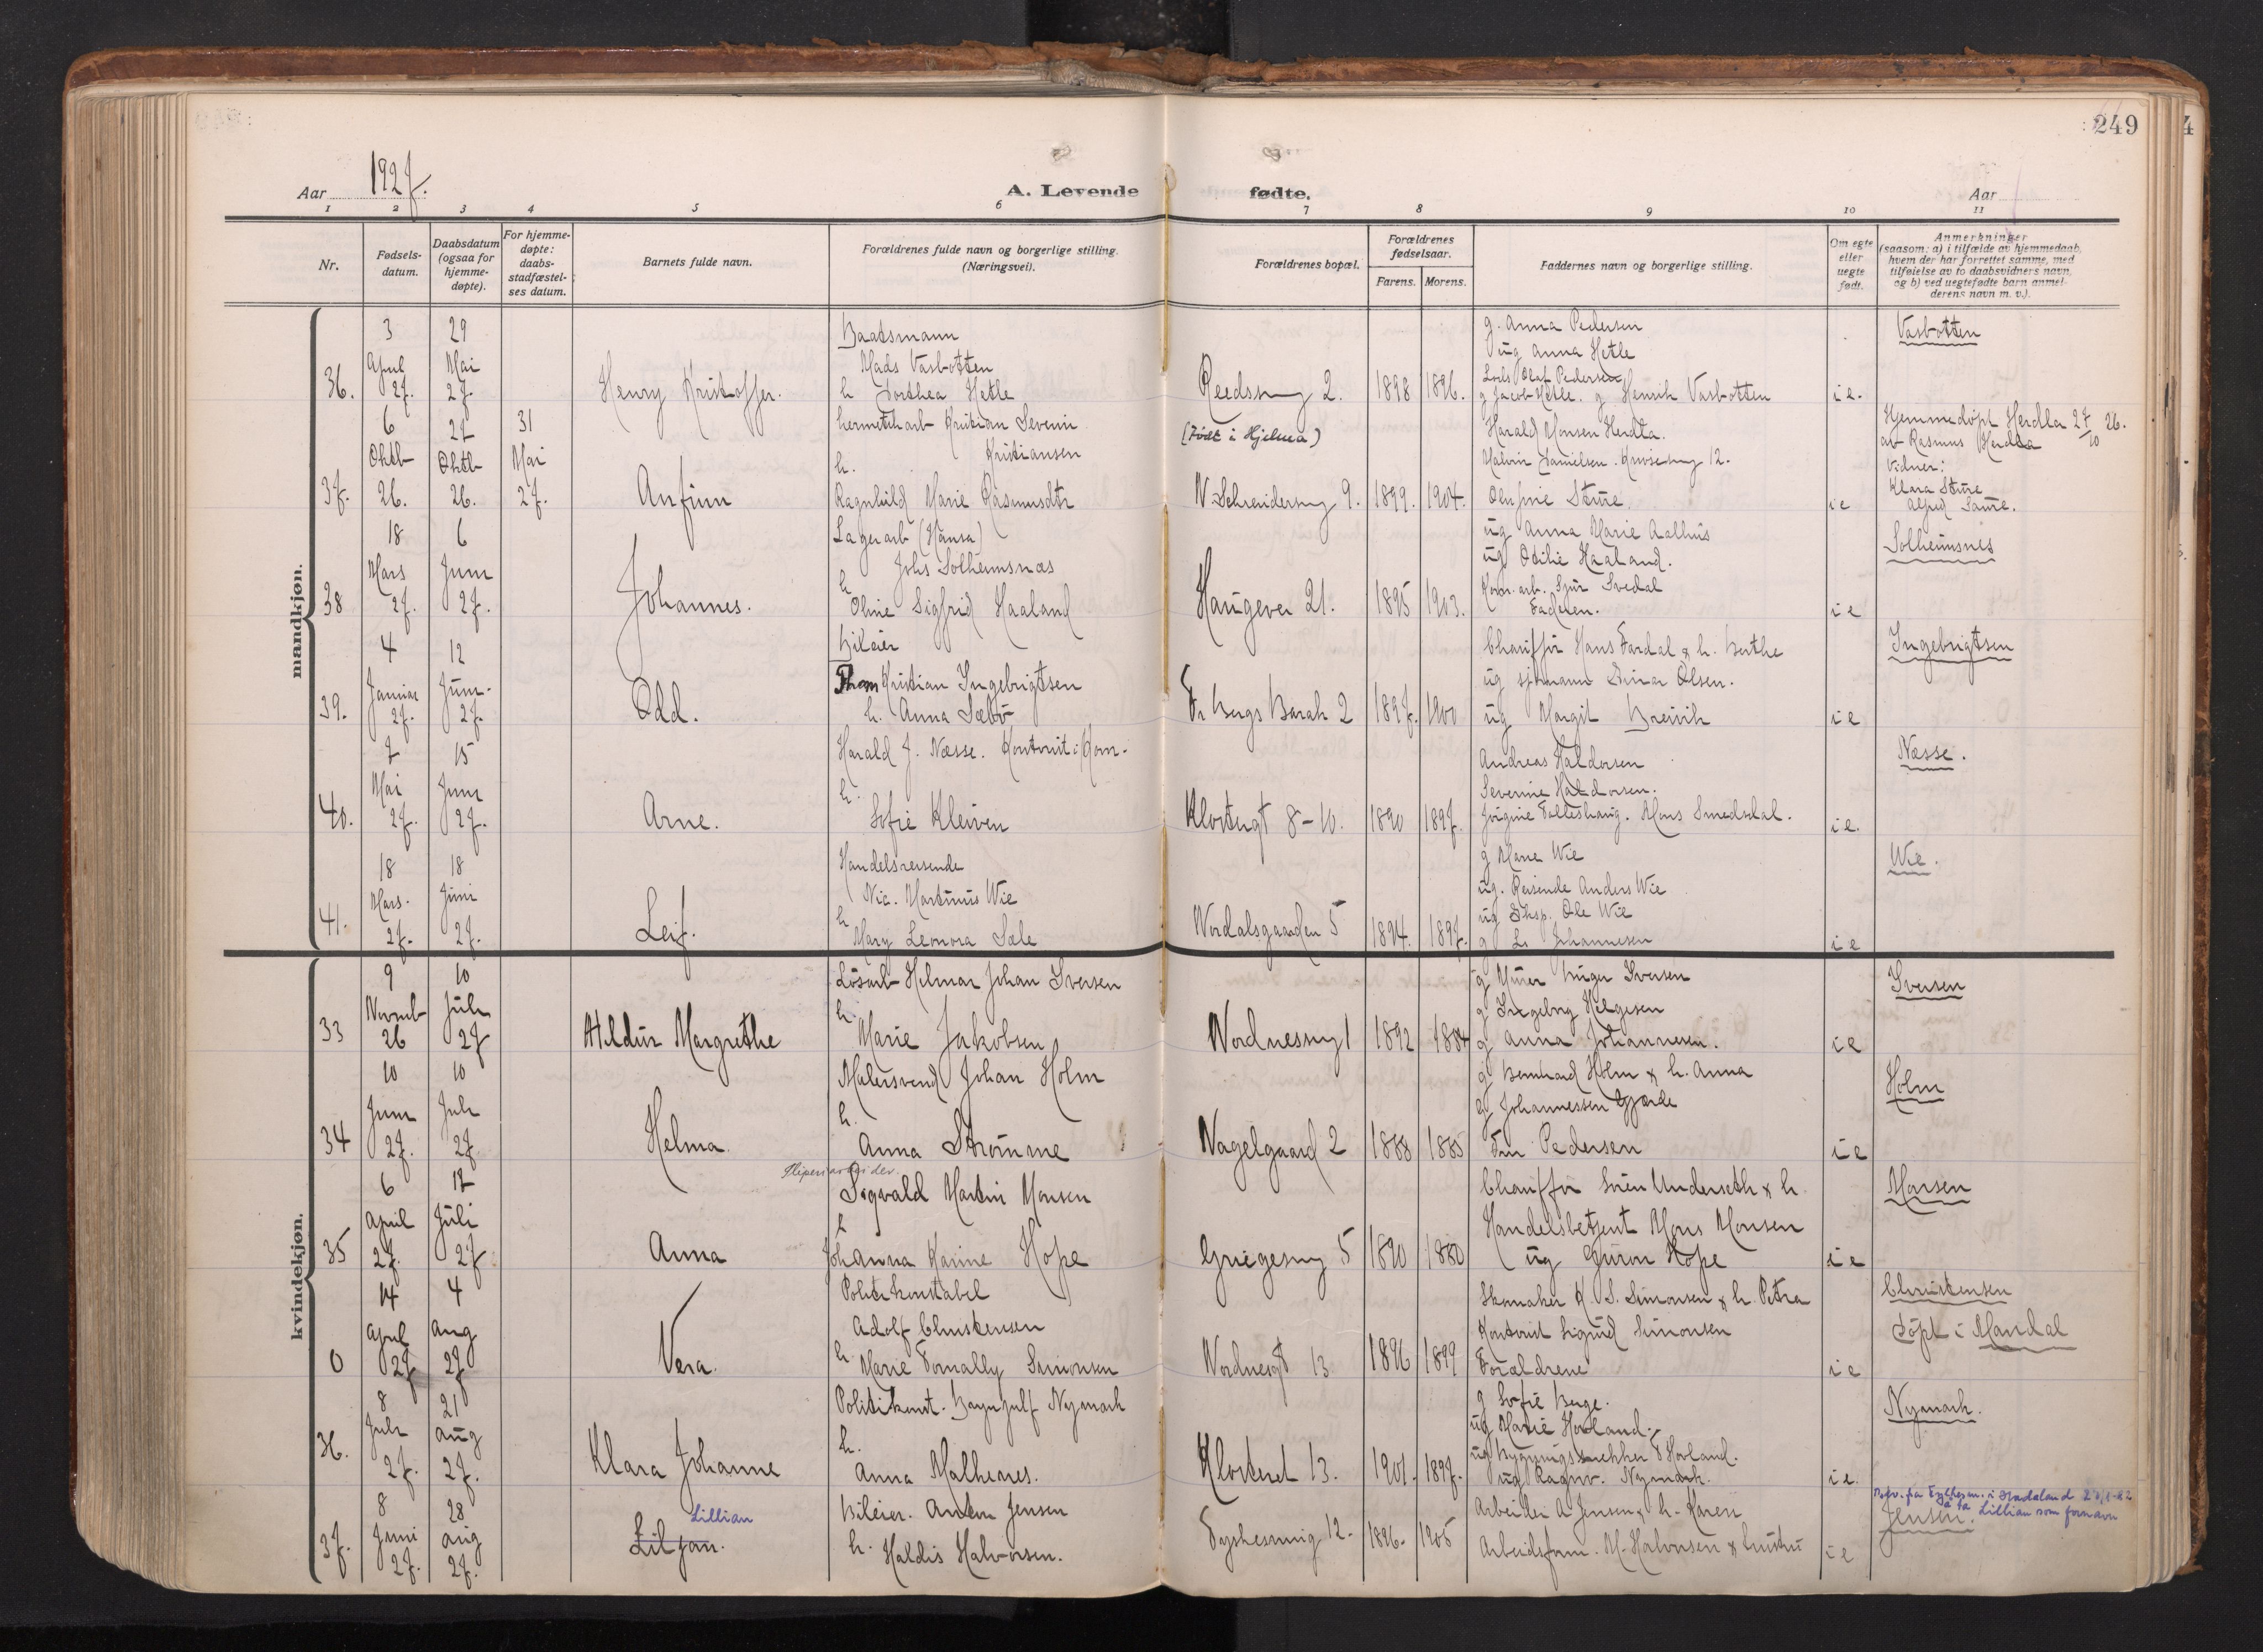 249
Aar 1927.
A. Levende fødte.
Aar
1 2 3 4 5 6 7 8 9 10 11
Nr.
Fødsels-
datum.
Daabsdatum
(ogsaa for
hjemme-
døpte).
For hjemme-
døpte:
daabs-
stadfæstel-
ses datum.
Barnets fulde navn.
Forældrenes fulde navn og borgerlige stilling.
(Næringsvei).
Forældrenes bopæl.
Forældrenes
fødselsaar.
Farens. Morens.
Faddernes navn og borgerlige stilling.
Om egte
eller
uegte
født.
Anmerkninger
(saasom: a) i tilfælde av hjemmedaab,
hvem der har forrettet samme, med
tilføielse av to daabsvidners navn,
og b) ved uegtefødte barn anmel-
derens navn m. v.).
mandkjøn.
36.
3
April
27.
29
Mai
27.
Henry Kristoffer.
Baadsmann
Mads Vasbotten
h Dorthea Hetle
2.
1898 1896.
g. Anna Pedersen
ug Anna Hetle
Olaf Pedersen
g Jacob Hetle. g Henrik Vasbotten
i e.
Vasbotten
37.
6
Oktb
26.
27
Oktb
26.
31
Mai
27.
Anfinn
hermetikarb Kristian Severin
Kristiansen
h.
Ragnhild Marie Rasmusdtr
(Født i Hjelma)
9.
1899. 1904.
Harald Monsen Herdla.
Malvin Danielsen. 12.
i e
Hjemmedøpt Herdla 27/10 26.
av Rasmus Herdla
Vidner:
Klara
Alfred
38
18
Mars
27.
6
Juni
27.
Johannes.
Lagerarb (Hansa)
Johs Solheimsnes
h
Oline Sigfrid Haaland
Haugeveien 21.
1895 1903.
ug Anna Marie Aalhus
ug Odilie Haaland.
Svedal
Faderen.
i e
Solheimsnes
39.
4
Januar
27.
12
Juni
27.
Odd.
Bileier
Thom Kristian Ingebrigtsen
h. Anna Sæbø
2
1897. 1900
Chauffør Hans Fardal & h. Berthe
ug sjømann Einar Olsen.
ug Margit Breivik
i e
Ingebrigtsen
40.
7
Mai
27.
15
Juni
27.
Arne.
Harald J. Næsse. Kontorist i Kom.
h.
Sofie Kleiven
Klostergt 8-10.
1890 1897.
Andreas Haldorsen
Severine Haldorsen.
Mons Smedsdal.
i e.
Næsse.
41.
18
Mars.
27.
18
Juni
27.
Leif.
Handelsreisende
Nic. Martinus Wie
h
Mary Leonora Sæle
Nordalsgaarden 5
1894. 1897.
g Marie Wie
ug. Reisende Anders Wie
ug Eksp. Ole Wie
g L. Johannesen
i e
Wie.
kvindekjøn.
33
9
Novmb
26
10
Juli
27
Hildur Margrethe
Løsarb Helmar Johan Iversen
h.
Marie Jakobsen
Nordnesvei 1
1892 1884
g Murer Birger Iversen
g Ingeborg Helgesen
g Anna Johannesen.
i e
Iversen
34
10
Juni
27.
10
Juli
27.
Helma.
Malersvend Johan Holm
h.
Anna Strømme
Nagelgaard 2
1888 1885
g Bernhard Holm & h. Anna
g Johannessen Gjerde
Fru Pedersen
i e
Holm
35
6
April
27.
17
Juli
27
Anna
Sliperiarbeider.
Sigvald Martin Monsen
h
Johanna Karine Hope
Griegesvei 5
1890 1880
Chauffør Sverre Underseth & h.
Handelsbetjent Mons Monsen
ug Guron Hope
i e
Monsen
0
14
April
27
4
Aug
27
Vera.
Politikonstabel
Adolf Christensen
h Marie Simonsen
Nordnesgt 13
1896 1899
Skomaker K. S. Simonsen & h. Petra
Kontorist Sigurd Simonsen
Forældrene
i e
Christensen
Døpt i Mandal
36.
8
Juli
27.
21
Aug
27.
Klara Johanne
Politikonst. Nymark
h.
Anna Malhenes.
Klosteret 13.
1901. 1897.
g Sofie Berge.
ug Marie Hovland.
ug Bygningssnekker T Hovland.
ug Ragnv. Nymark.
i e.
Nymark.
37.
8
Juni
27.
28
Aug
27.
Liljan. Lillian
Bileier. Anton Jensen
h. Haldis Halvorsen.
12.
1896. 1905
Arbeider A Jensen & h. Karen
Arbeidsform. M. Halvorsen & hustru
i e
Bev. fra Fylkesm. i Hordaland
å ta Lillian som fornavn
Jensen.